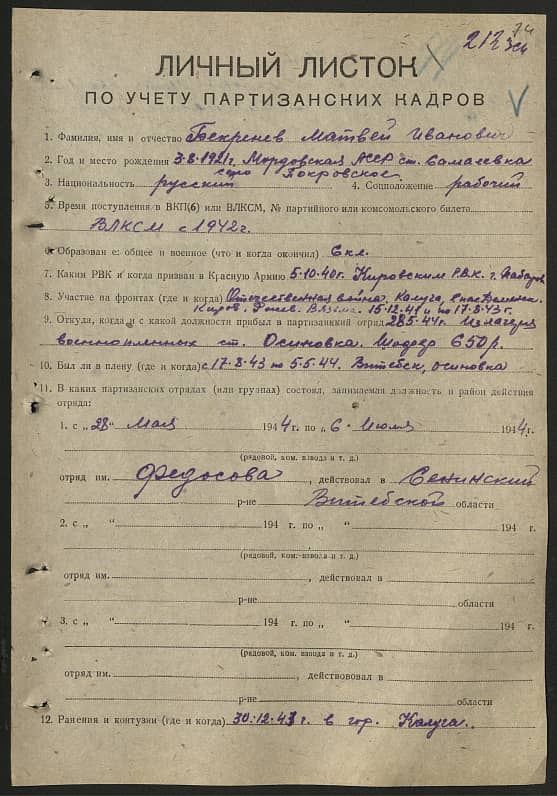 74
212
ЛИЧНЫЙ ЛИСТОК
ПО УЧЕТУ ПАРТИЗАНСКИХ КАДРОВ
1. Фамилия, имя и отчество Матвей Иванович
2. Год и место рождения 3.8.1921г. Мордовская АССР ст.
село Покровское.
3. Национальность русский 4. Соцположение рабочий
5. Время поступления в ВКП(б) или ВЛКСМ, № партийного или комсомольского билета
ВЛКСМ с 1942г.
6. Образован е: общее и военное (что и когда окончил) 6 кл.
7. Каким РВК и когда призван в Красную Армию 5.10.40г. Кировским Р.В.К. г.
8. Участие на фронтах (где и когда) Отечественная война. Калуга,
Киров. Вязьма. 15.12.41 и по 17.8.43г.
9. Откуда, когда и с какой должности прибыл в партизанский отряд 28.5.44г. Из лагеря
военнопленных ст. Осиновка. 650р.
10. Был ли в плену (где и когда) с 17.8.43 по 5.5.44. Витебск, осиновка
11. В каких партизанских отрядах (или группах) состоял, занимаемая должность и район действия
отряда:
1. с „28“ Мая 1944 г. по „6“ Июля 1944 г.
(рядовой, ком. взвода и т. д.)
отряд им. Федосова, действовал в Сенинский
р-не Витебской области
2. с „ “ 194 г. по „ “ 194 г.
(рядовой, ком. взвода и т. д.)
отряд им. , действовал в
р-не области
3. с „ “ 194 г. по „ “ 194 г.
(рядовой, ком. взвода и т. д.)
отряд им. , действововал в
р-не области
12. Ранения и контузии (где и когда) 30.12.41 г. в гор. Калуга.